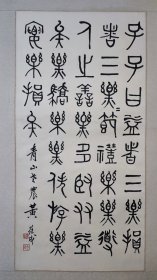 孔子曰益者三樂損
者三樂〻節禮樂樂道
人之善樂多賢友益
矣樂驕樂樂佚遊樂
宴樂損矣 青山老農黃葆戉